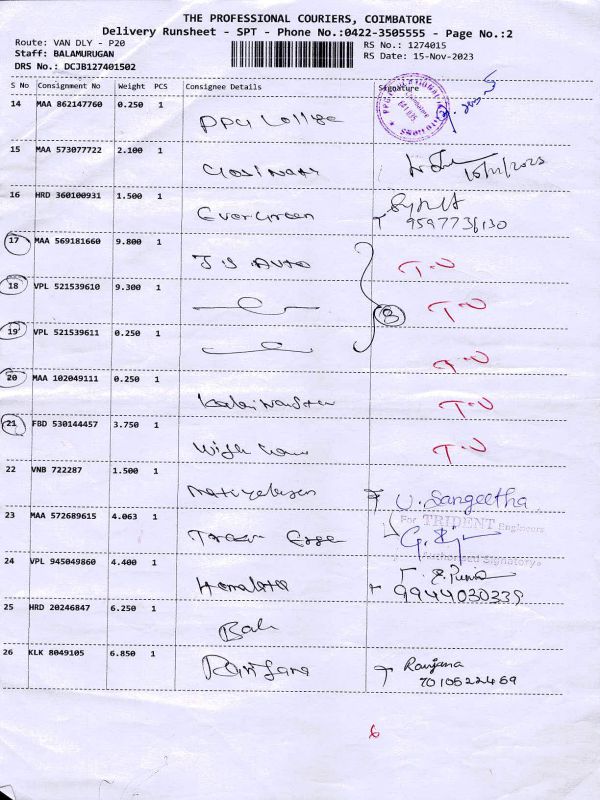 THE PROFESSIONAL COURIERS, COIMBATORE
Delivery Runsheet - SPT - Phone No.:0422-3505555 - Page No.:2
Route: VAN DLY - P20
Staff: BALAMURUGAN
DRS No.: DCJB127401502
RS No.: 1274015
RS Date: 15-Nov-2023
S No Consignment No Weight PCS Consignee Details Signature
14 MAA 862147760 0.250 1
PPG College
15 MAA 573077722 2.100 1
16 HRD 360100931 1.500 1
Evergreen
17 MAA 569181660 9.800 1
J S AUTO T-N
18 VPL 521539610 9.300 1
T-N
3
19 VPL 521539611 0.250 1
T-N
20 MAA 102049111 0.250 1
T-N
21 FBD 530144457 3.750 1
T-N
22 VNB 722287 1.500 1
U. Sangeetha
23 MAA 572689615 4.063 1
For TRIDENT Engineers
Authorised Signatory
24 VPL 945049860 4.400 1
Hemalatha
9944030239
25 HRD 20246847 6.250 1
Bala
26 KLK 8049105 6.850 1
Ranjana Ranjana
7010622459
6